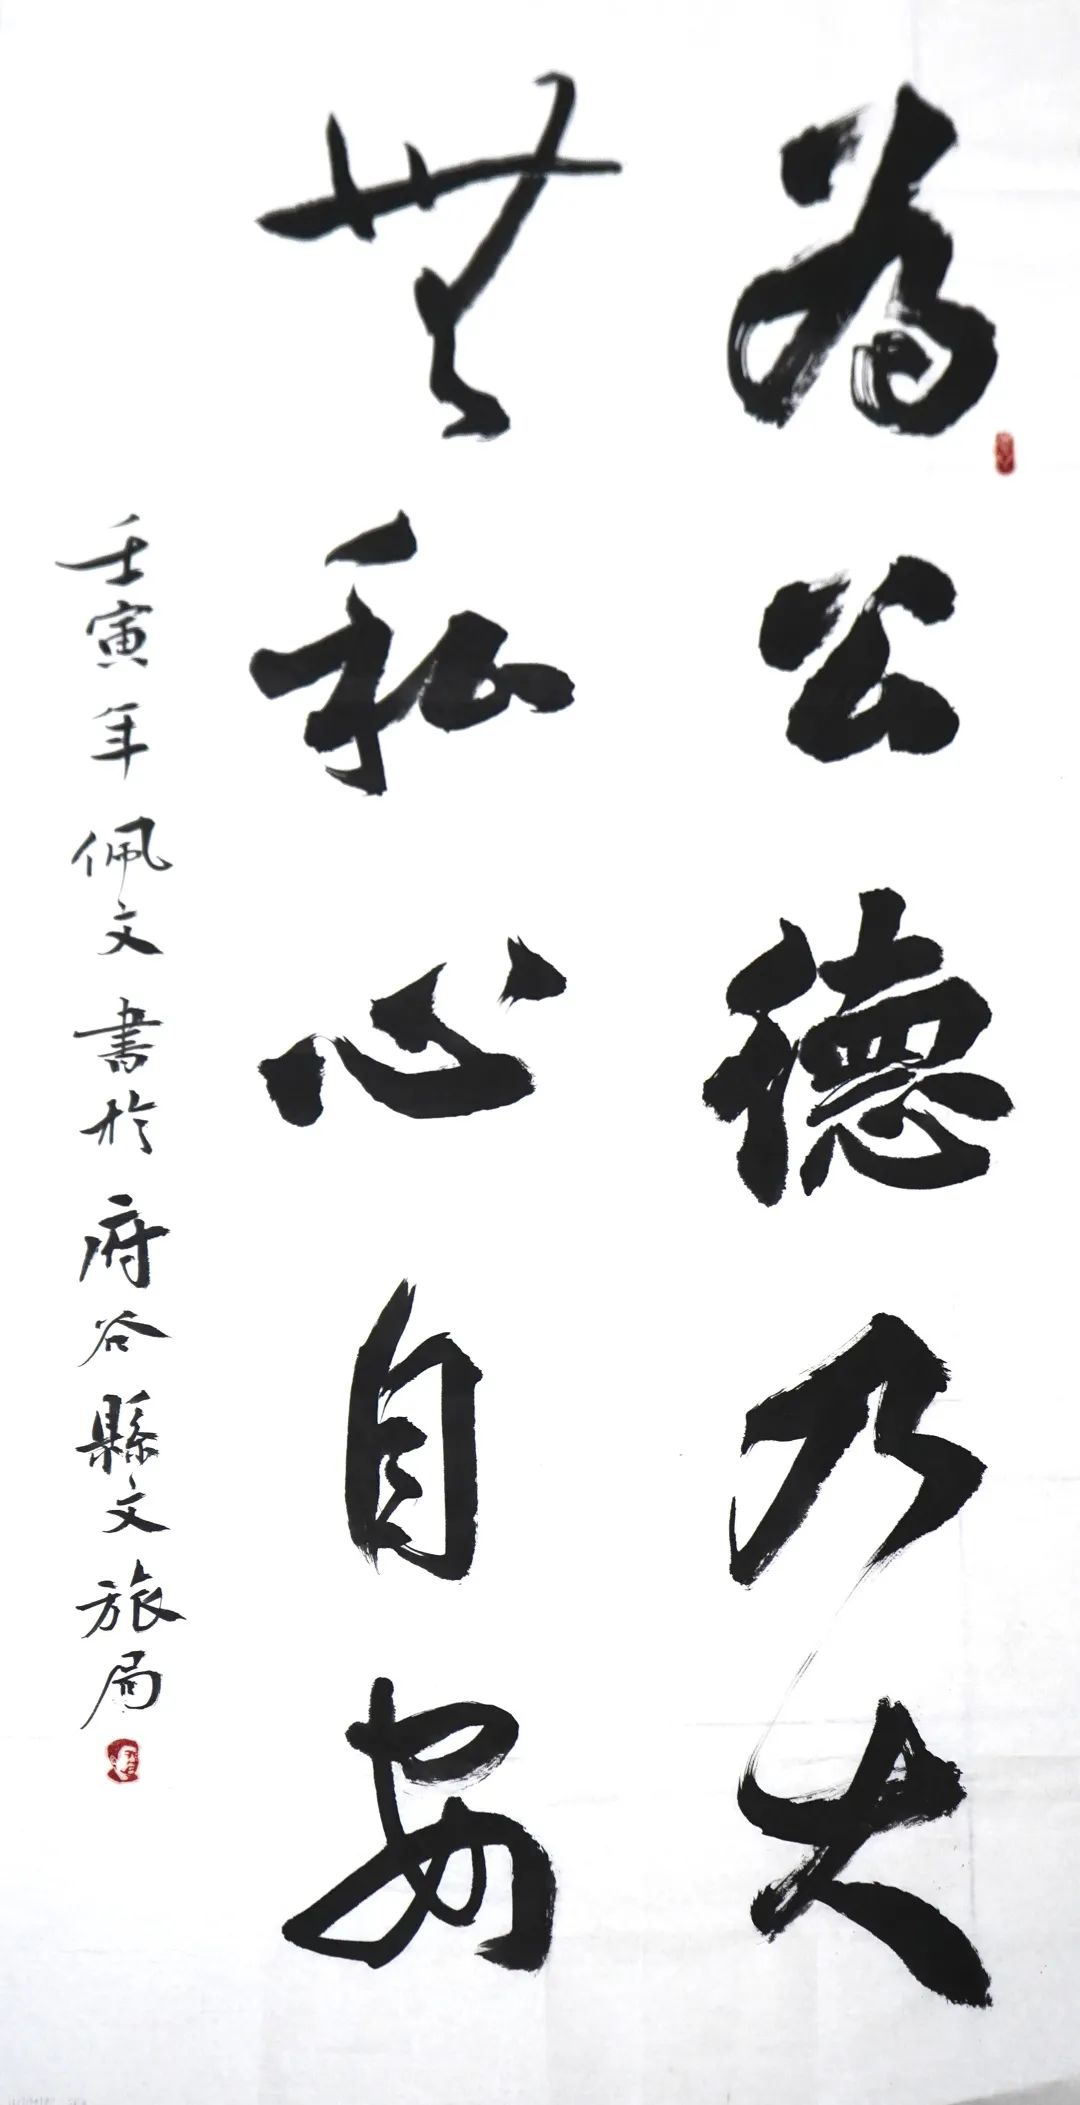 為公德乃大
無私心自安
壬寅年佩文書於府谷縣文旅局